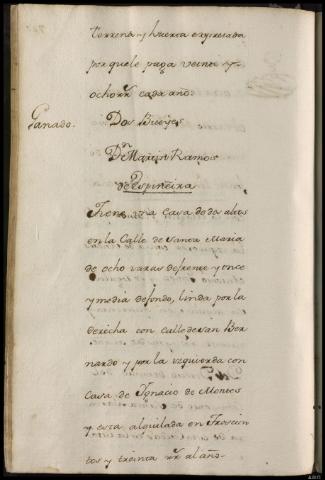 terrena y huerta expresada
por que le paga veinte y
ocho rr. cada año.
Ganado. Dos Bueyes
Dn. Martin Ramos
de Espiñeira
Tiene una Casa de dos altos
en la Calle de Santa Maria
de ocho varas de frente y once
y media de fondo, linda por la
derecha con calle de San Ber
nardo y por la yzquierda con
Casa de Ignacio de Montes
y esta alquilada en Trescien
tos y treinta rr. al año.